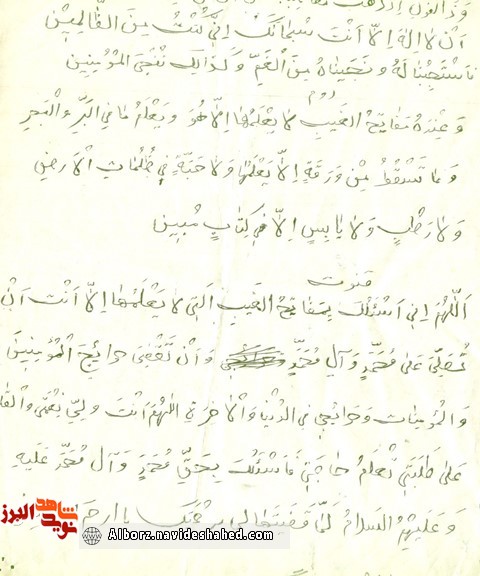 اَنْ لا اِلهَ اِلاّ اَنْتَ سُبْحانَكَ اِنّی كُنْتُ مِنَ الظّالِمینَ
فَاسْتَجَبْنا لَهُ وَ نَجَّیْناهُ مِنَ الْغَمِّ وَ كَذالِكَ نُنْجِی الْمُؤْمِنینَ
دوم
وَ عِنْدَهُ مَفاتِیحُ الْغَیْبِ لا یَعْلَمُها اِلاّ هُوَ وَ یَعْلَمُ ما فِی الْبَرِّ وَ الْبَحرِ
وَ ما تَسْقُطُ مِنْ وَرَقَةٍ اِلاّ یَعْلَمُها وَ لا حَبَّةٍ فی ظُلُماتِ الْاَرضِ
وَ لا رَطْبٍ وَ لا یابِسٍ اِلاّ فی كِتابٍ مُبینٍ
قنوت
اَللّهُمَّ اِنی اَسْئَلُكَ بِمَفاتِیحِ الغَیبِ الَّتی لا یَعْلَمُها اِلاّ اَنْتَ اَنْ
تُصَلِّیَ عَلی مُحَمَّدٍ وَ آلِ مُحَمَّدٍ وَ اَنْ تَقْضِیَ حوائِجَ الْمُؤْمِنینَ
وَ الْمُؤمِناتِ وَ حَوائِجی فِی الدُّنْیا وَ الْاخِرَةِ اللهُمَّ اَنْتَ وَلِیُّ نِعْمَتی وَ الْقا
عَلی طَلِبَتی تَعْلَمُ حاجَتی فَاَسْئَلُكَ بِحَقِّ مُحَمَّدٍ وَ آلِ مُحَمَّدٍ عَلَیهِ
وَ عَلَیْهِمُ السَلامُ لَمّا قَضَیْتَها لی بِرَحْمَتِكَ یا ارحَمَ
شاهد
نوید
البرز
Alborz.navideshahed.com